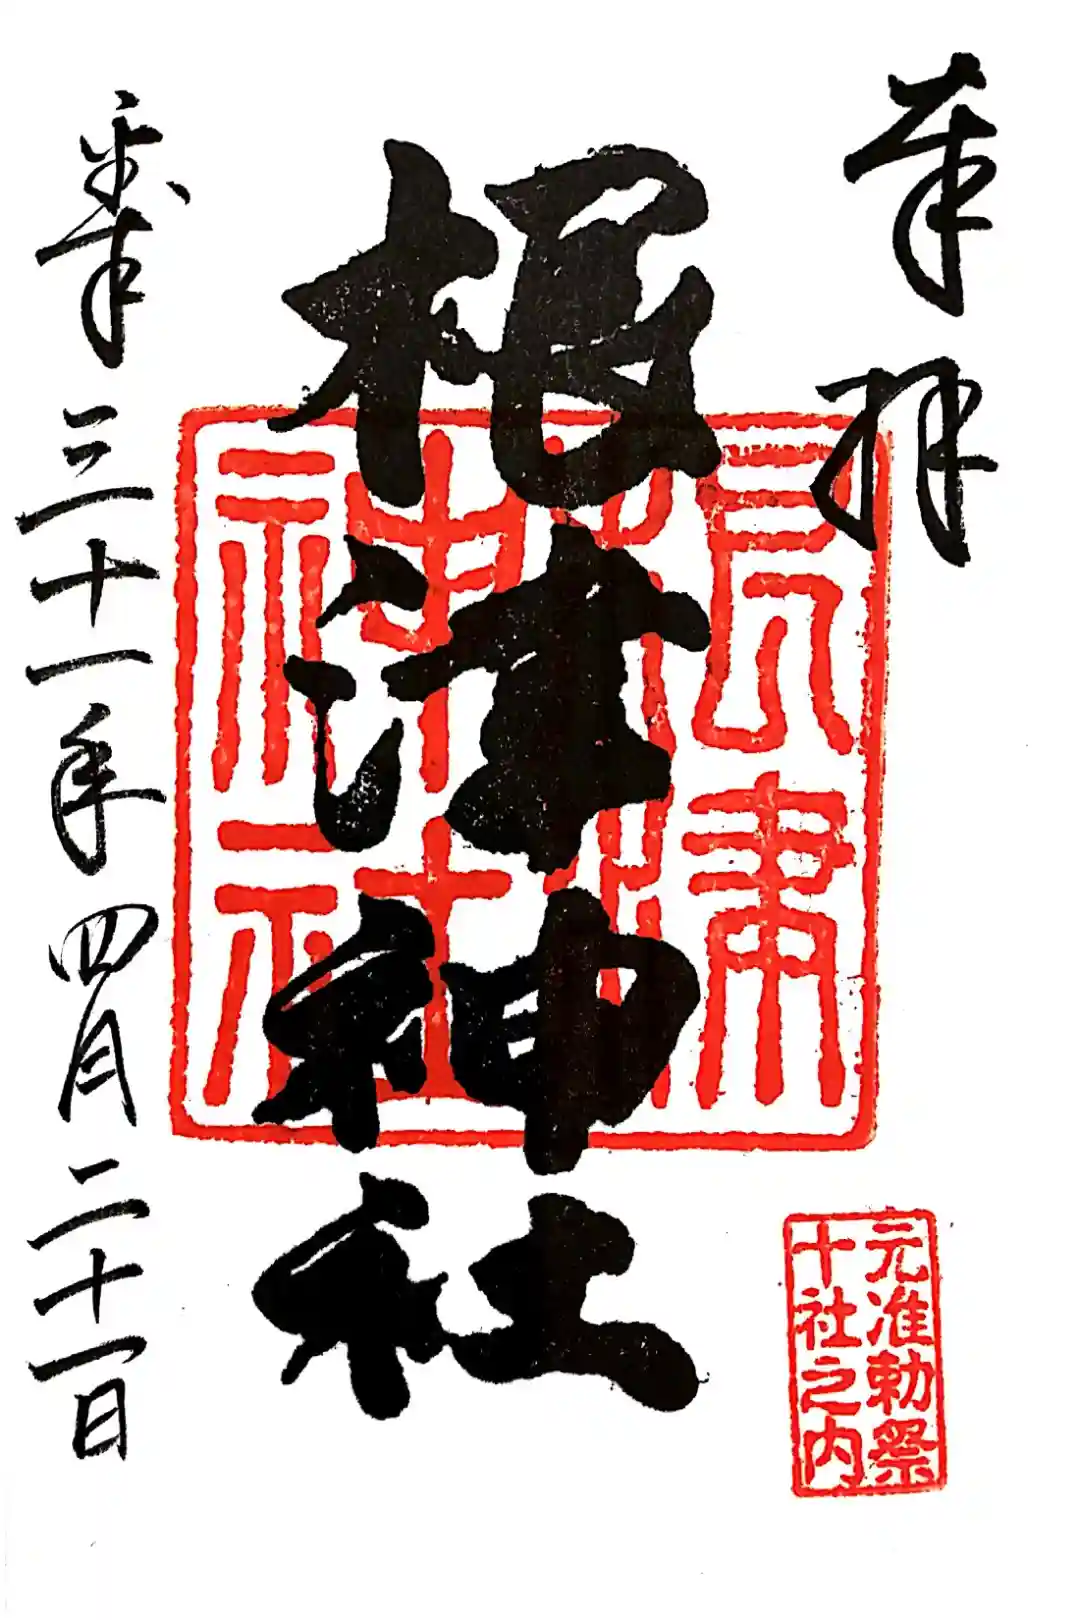 奉拝
根津神社
根津
神社
元准勅祭
十社之内
平成三十一年四月二十一日